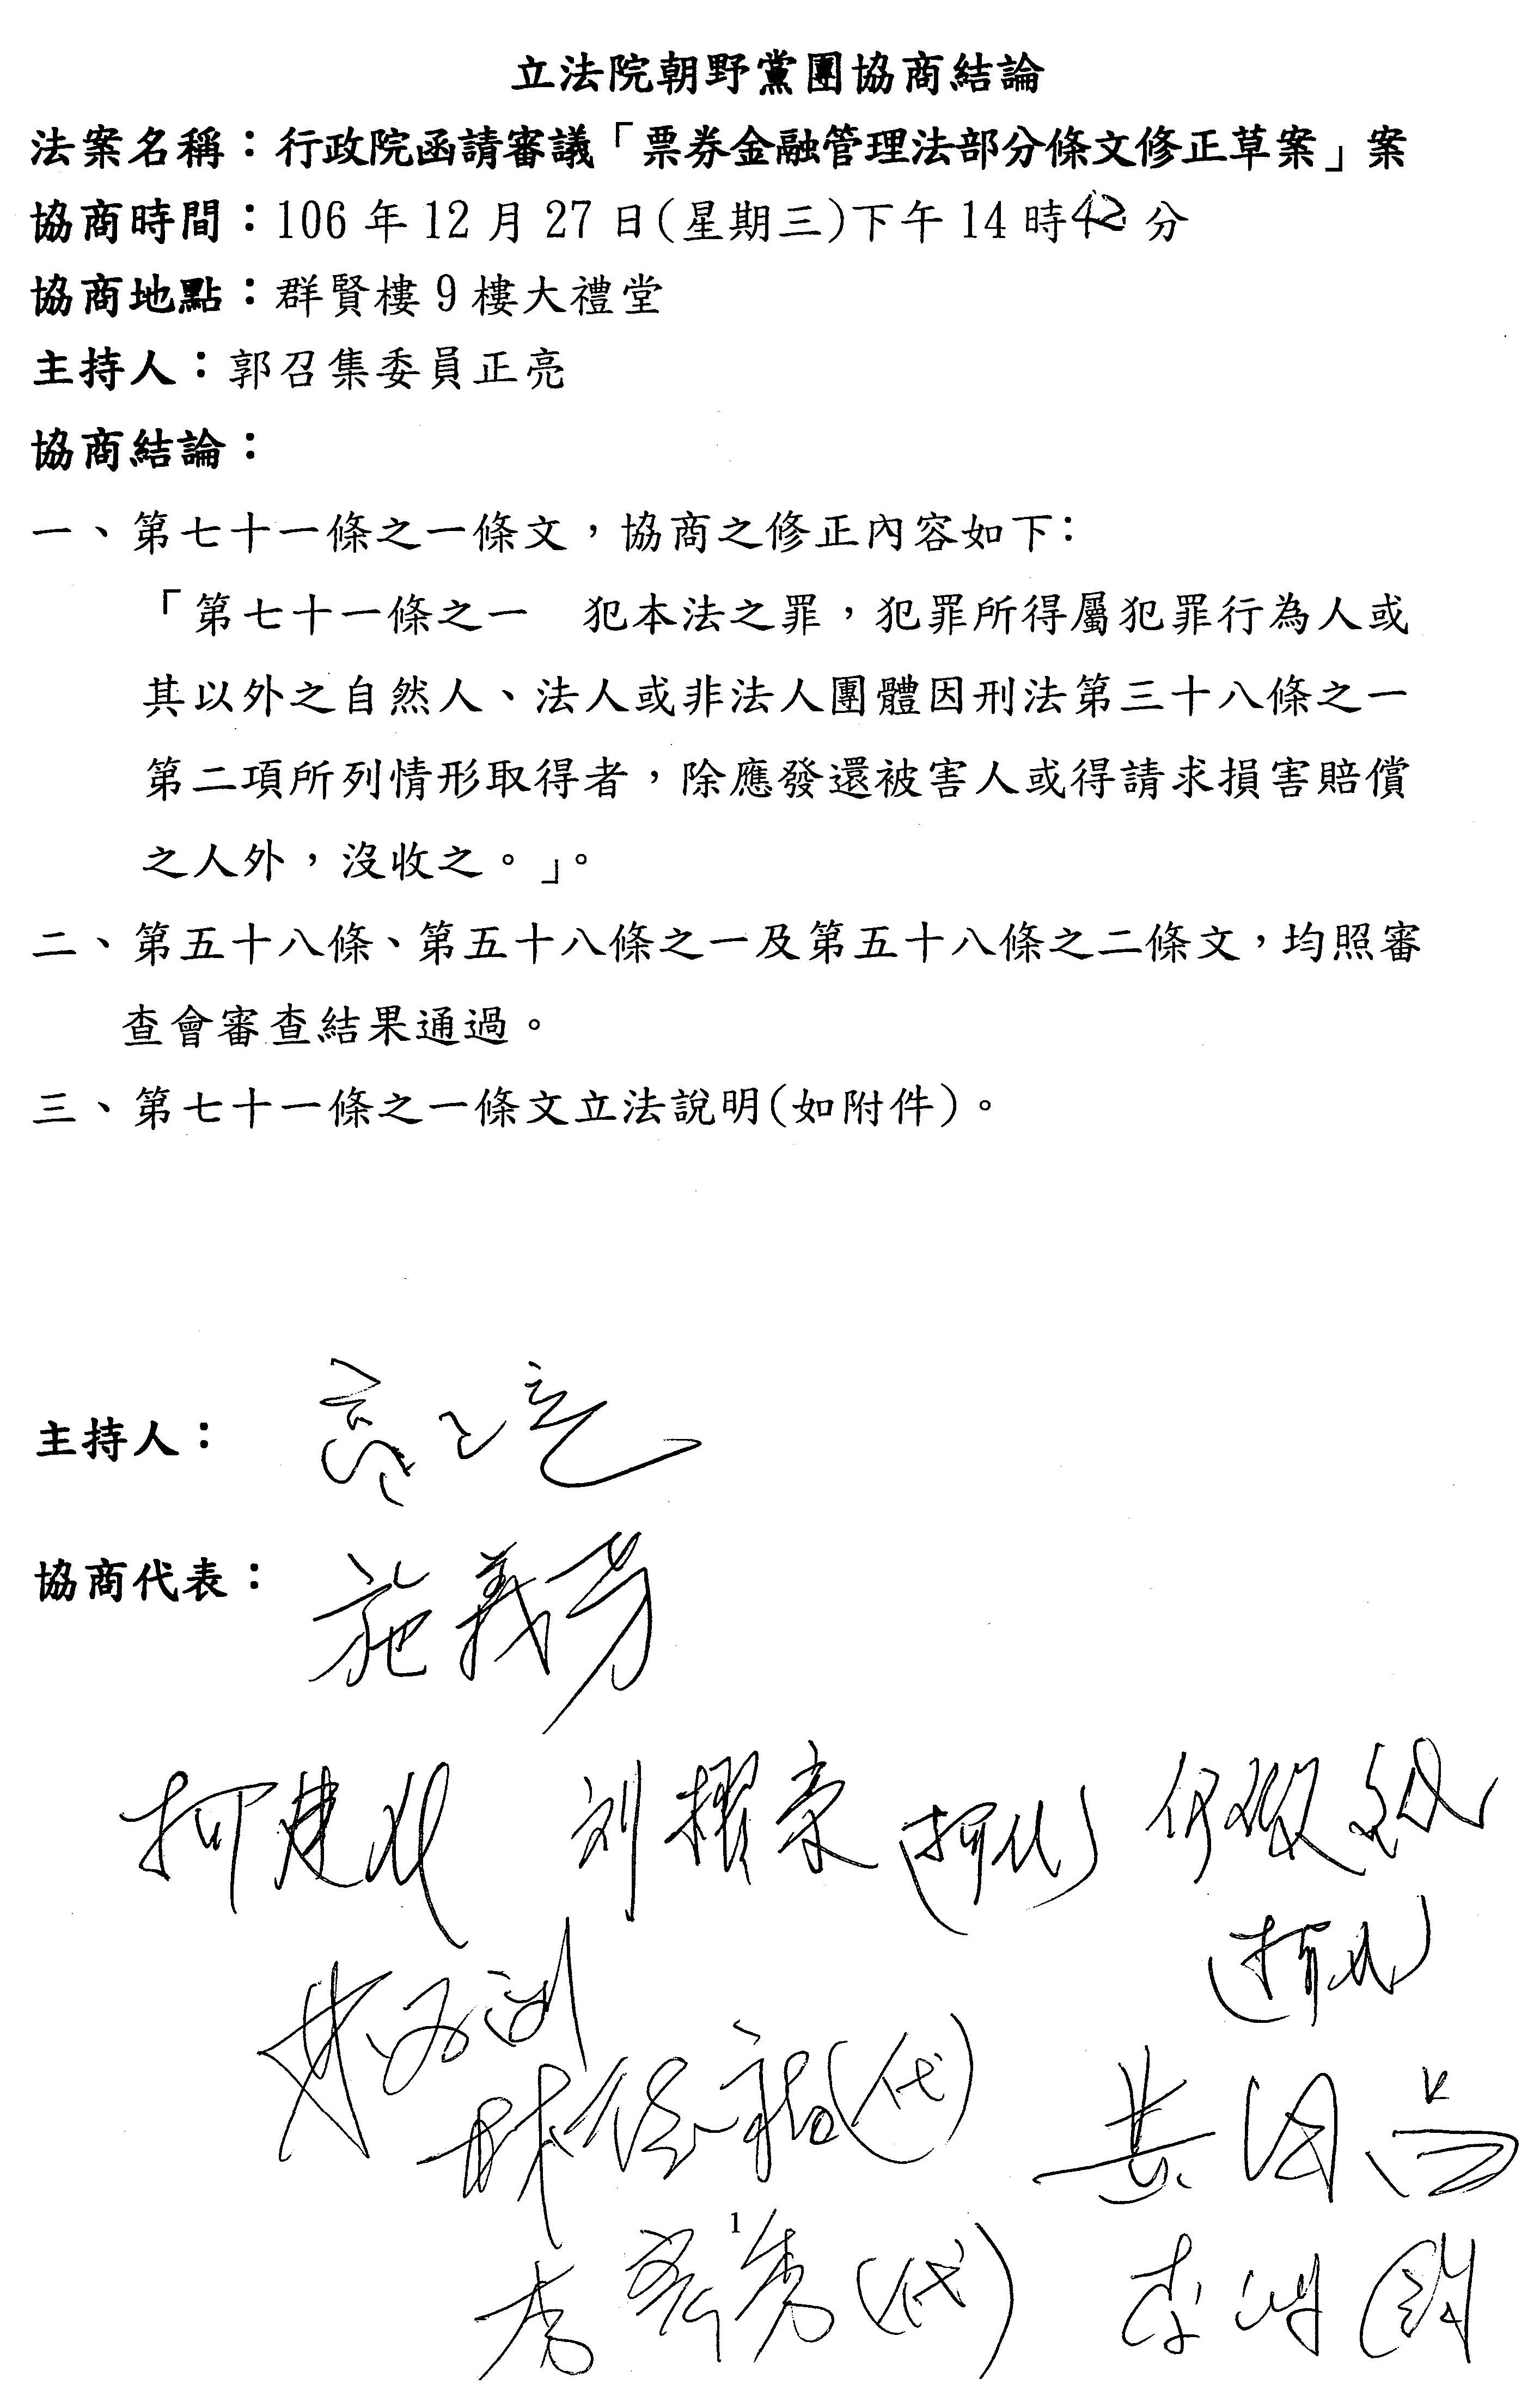 立法院朝野黨團協商結論
法案名稱：行政院函請審議「票券金融管理法部分條文修正草案」案
協商時間：106年12月27日(星期三)下午14時42分
協商地點：群賢樓9樓大禮堂
主持人：郭召集委員正亮
協商結論：
一、第七十一條之一條文，協商之修正內容如下：
「第七十一條之一　犯本法之罪，犯罪所得屬犯罪行為人或
其以外之自然人、法人或非法人團體因刑法第三十八條之一
第二項所列情形取得者，除應發還被害人或得請求損害賠償
之人外，沒收之。」。
二、第五十八條、第五十八條之一及第五十八條之二條文，均照審
查會審查結果通過。
三、第七十一條之一條文立法說明(如附件)。
主持人：
協商代表：施義芳
柯建 刘櫂豪
林德福(代)
(代) 李鴻鈞
1